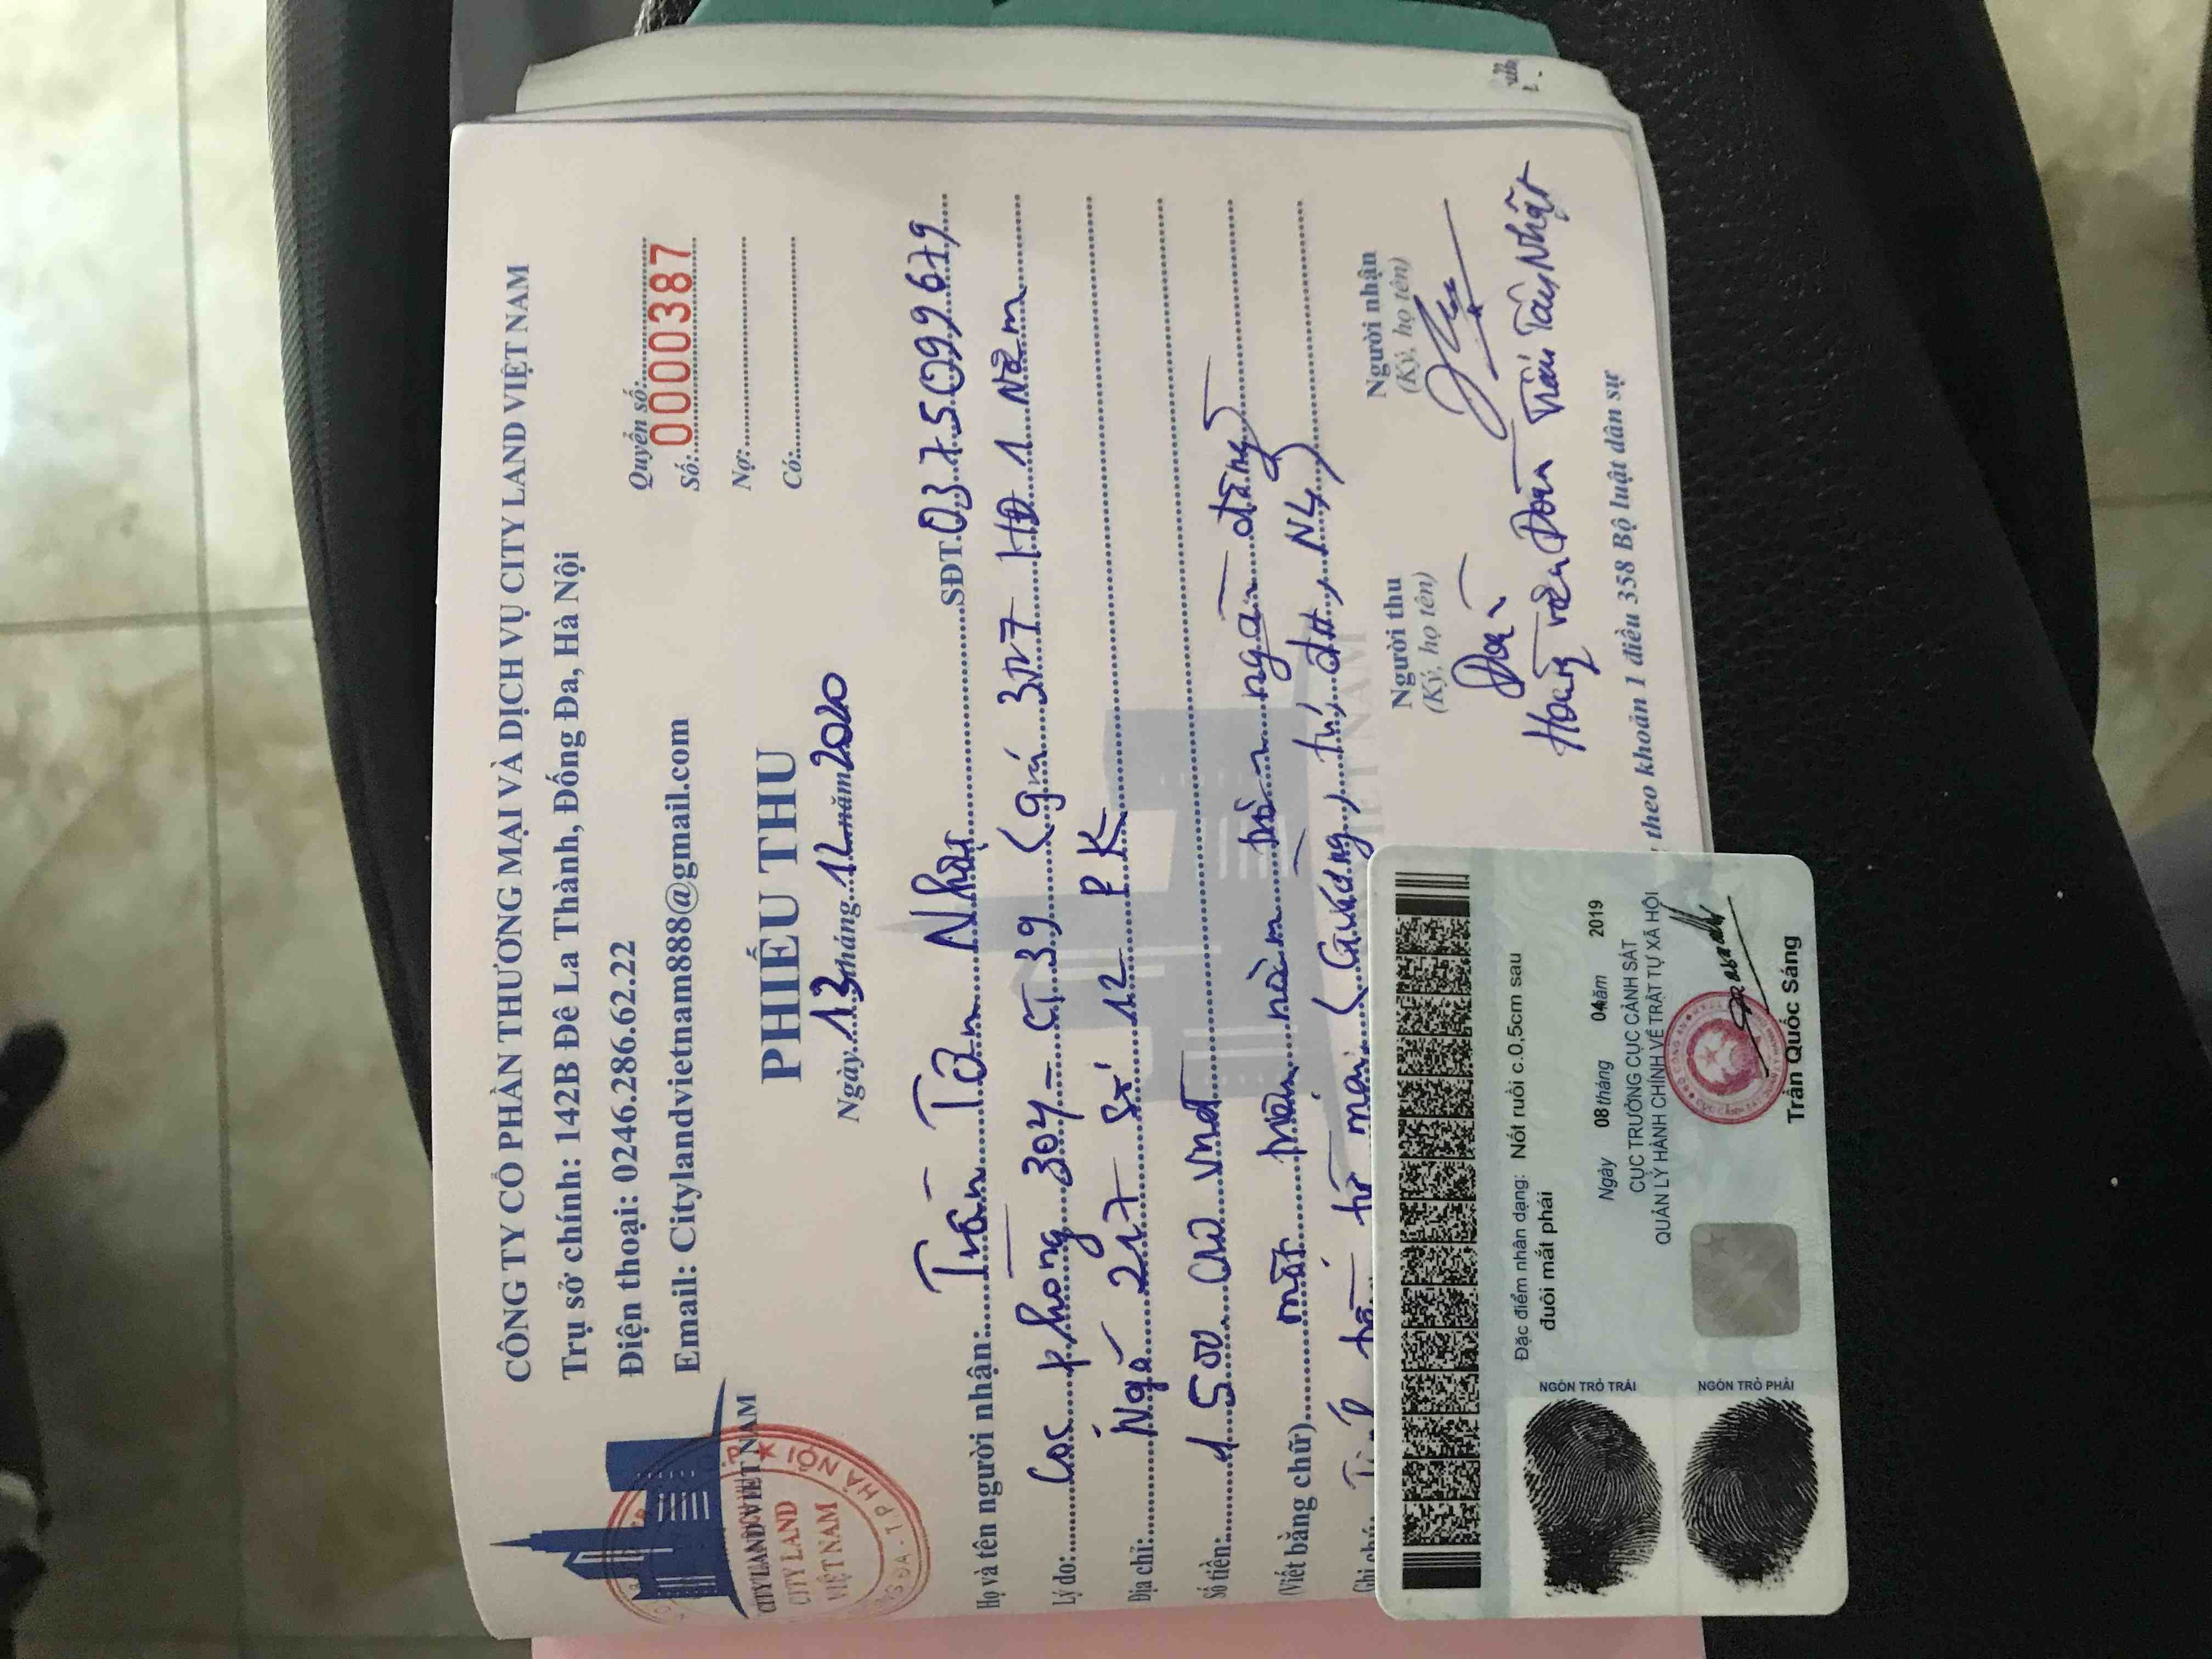 CÔNG TY CỔ PHẦN THƯƠNG MẠI VÀ DỊCH VỤ CITY LAND VIỆT NAM
Trụ sở chính: 142B Đê La Thành, Đống Đa, Hà Nội
Điện thoại: 0246.286.62.22
Email: Citylandvietnam888@gmail.com
CITY LAND VIỆT NAM
CITY LAND
VIỆT NAM
T.P HÀ NỘI
Quyển số:
Số: 0000387
Nợ:
Có:
PHIẾU THU
Ngày 13 tháng 12 năm 2020
Họ và tên người nhận: Trần Tân Nhật SĐT. 0375099679
Lý do: Cọc phòng 304 - CT 39 (giá 3tr7 HĐ 1 Năm
Địa chỉ: Ngõ 217 Số 12 P K
Số tiền: 1 500 000 vnđ
(Viết bằng chữ) một triệu năm trăm ngàn đồng
Ghi chú: tủ, đh, NL)
VIỆT NAM
Người thu
(Ký, họ tên)
Đoàn
Hoàng văn Đoàn
Người nhận
(Ký, họ tên)
Trần Tân Nhật
theo khoản 1 điều 358 Bộ luật dân sự
Đặc điểm nhân dạng: Nốt ruồi c.0,5cm sau
đuôi mắt phải
Ngày 08 tháng 04 năm 2019
CỤC TRƯỞNG CỤC CẢNH SÁT
QUẢN LÝ HÀNH CHÍNH VỀ TRẬT TỰ XÃ HỘI
Trần Quốc Sáng
NGÓN TRỎ TRÁI
NGÓN TRỎ PHẢI